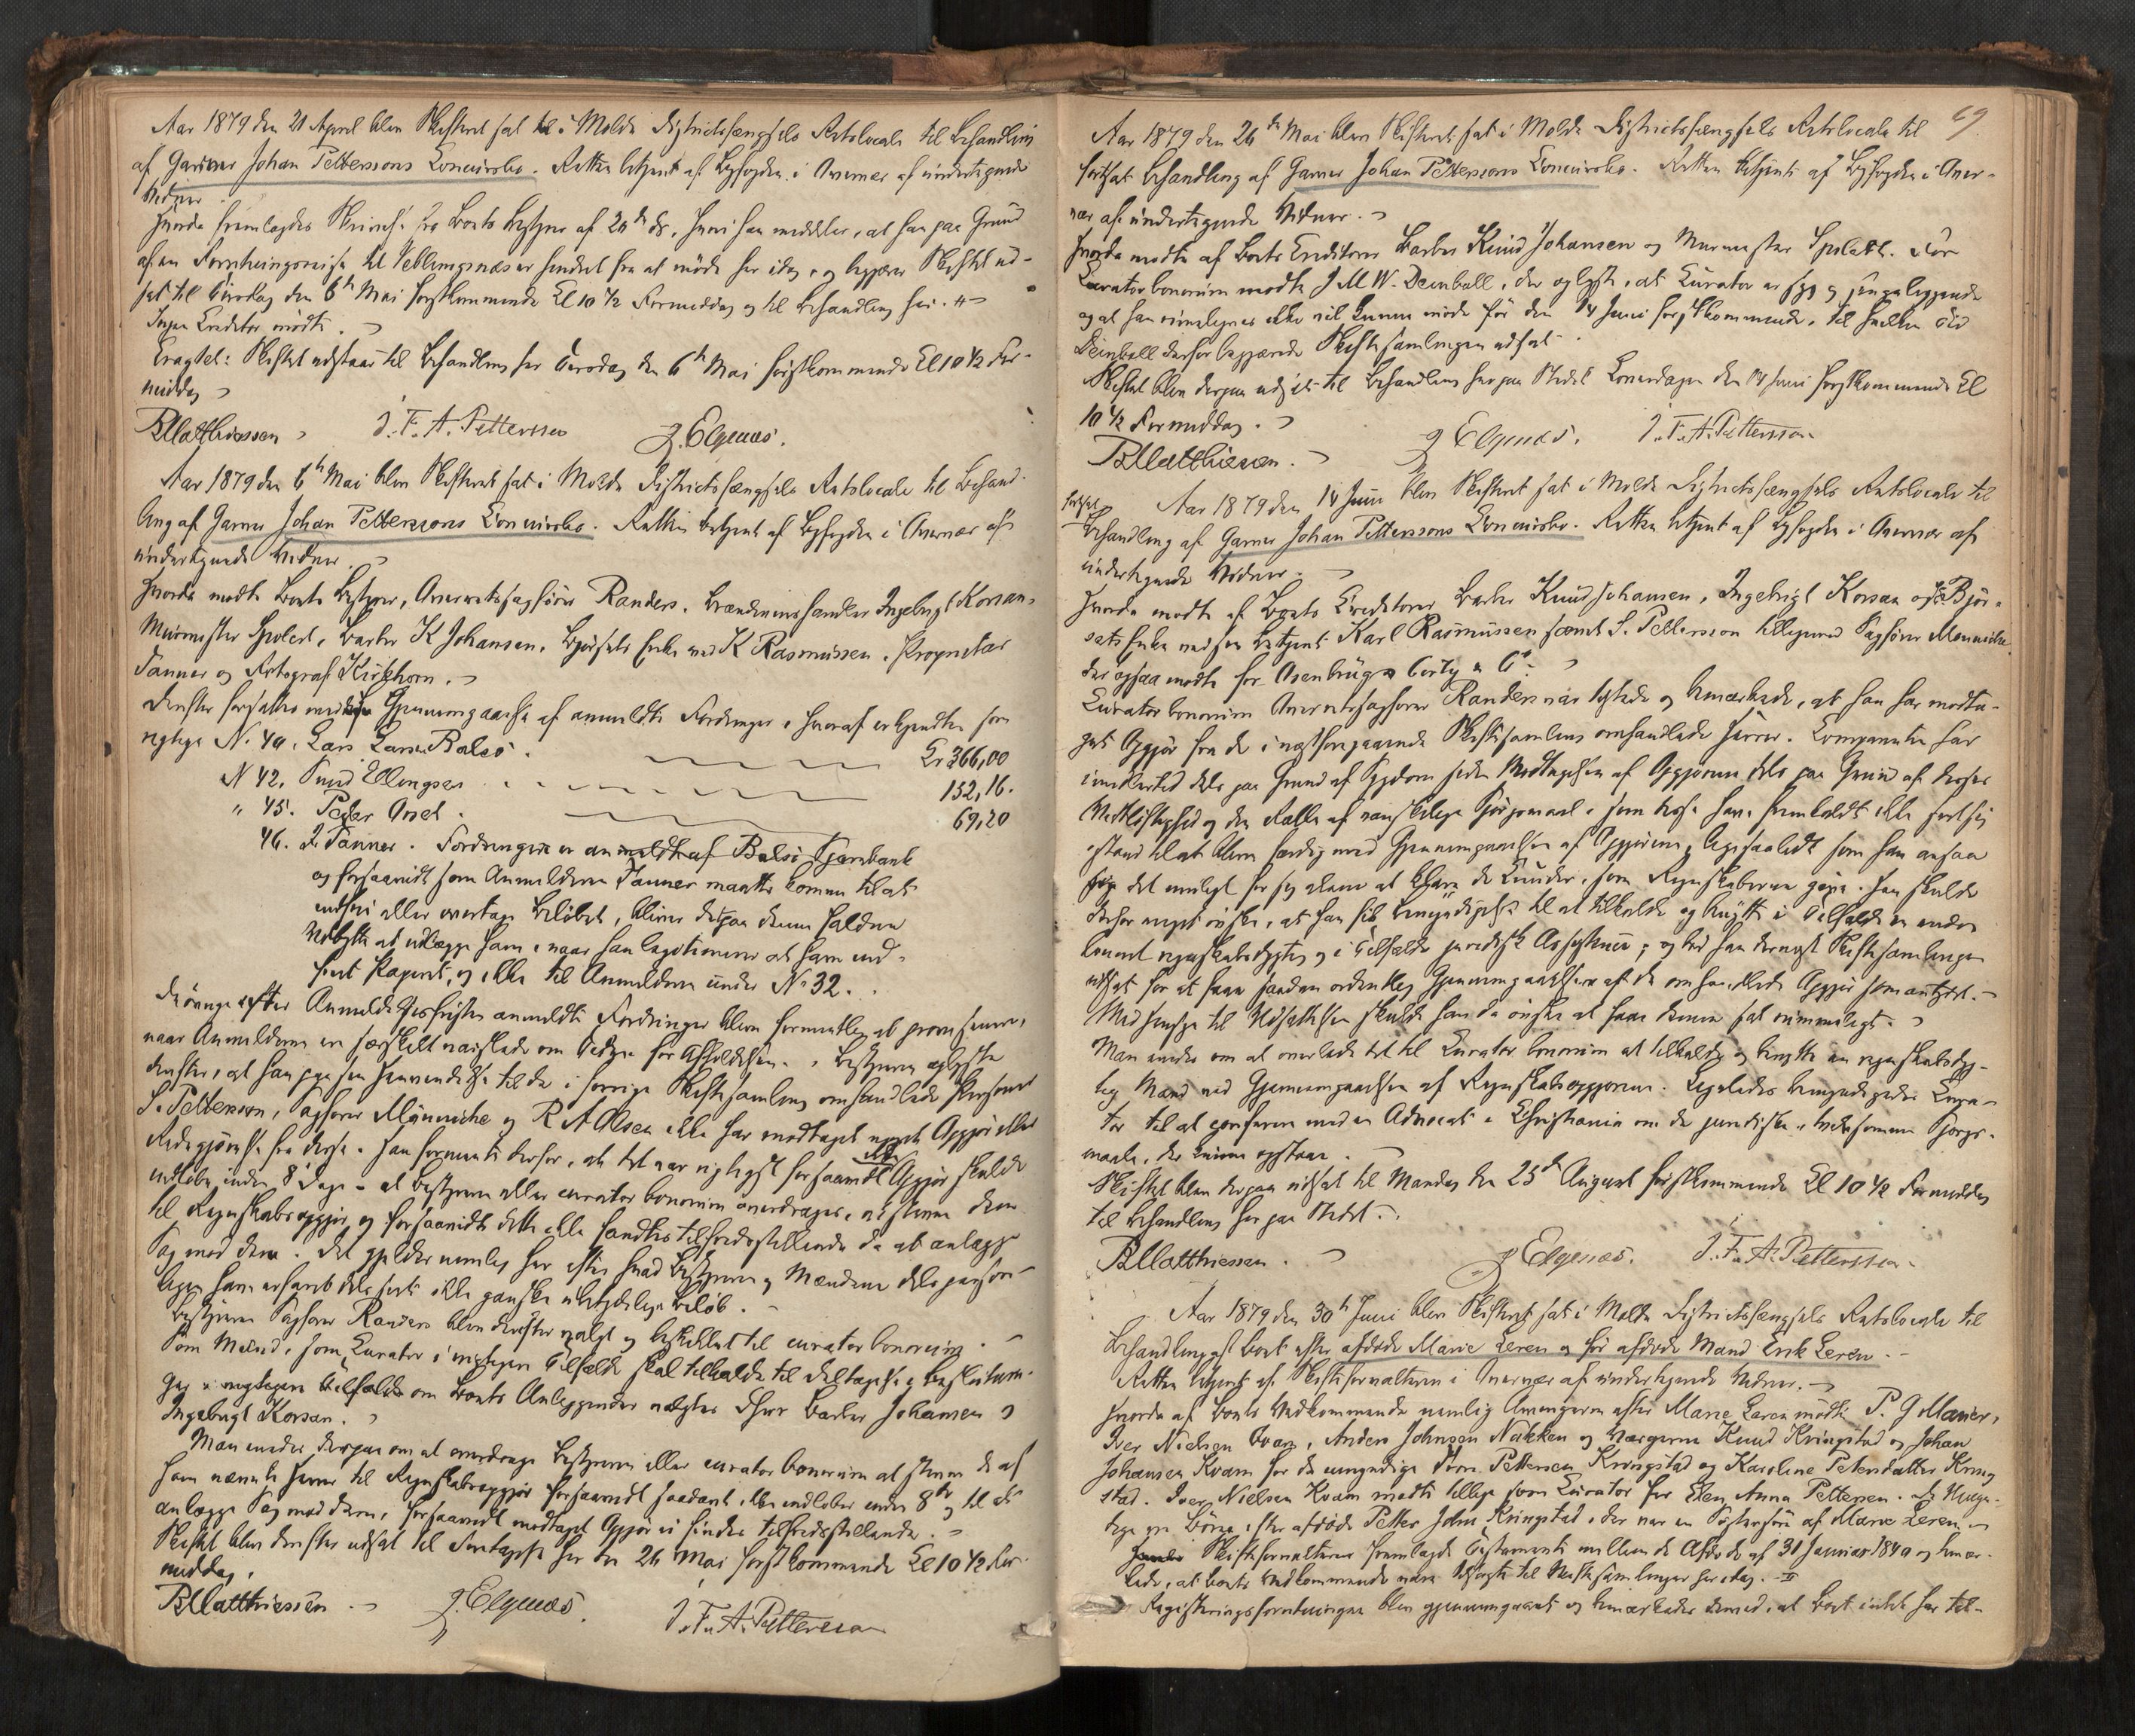 Aar 1879 den 21 April blev Skifteret sat i Molde Districtsfængsels Retslocale til Behandling
af Garver Johan Petterssons Concursbo. Retten betjent af Byfogden i Overvær af undertegnede
Vidner.
Hvorda fremlagdes Skrivelse fra Boets Bestyrer af 20de ds, hvori han meddeler, at han paa Grund
af en Forretningsreise til Veblungsnæs er hindret fra at møde her idag, og begjærer Skiftet ud-
sat til Tirsdag den 6te Mai førstkommende Kl 10 1/2 Formiddag og til Behandling her.
Ingen Creditor mødte.
Eragtet: Skiftet udstaar til Behandling her Tirsdag den 6te Mai førstkommende Kl 10 1/2 For-
middag
BMatthiessen J. F. A. Pettersson J. Elgenæs.
Aar 1879 den 6te Mai blev Skifteret sat i Molde Districtsfængsels Retslocale til Behand-
ling af Garver Johan Petterssons Concursbo. Retten betjent af Byfogden i Overvær af
undertegnede Vidner.
Hvorda mødte Boets Bestyrer, Overretssagfører Randers, Brændevinshandler Ingebrigt Korsan,
Murmester Spolert, Barber K Johansen, Bjørsets Enke ved K Rasmussen, Proprietær
Tanner og Fotograf Kirkhorn.
Derefter fortsattes med Gjennemgaaelse af anmeldte Fordringer, hvoraf erkjendtes som
rigtige N. 40. Lars Larsen Bolsø. Kr 366,00
N 42. Knud Ellingsen 152,16.
" 45. Peder Oset 69,20
46. J. Tanner. Fordringen er anmeldt af Bolsø Sparebank
og forsaavidt som Anmelderen Tanner maatte komme til at
indfri eller overtage Beløbet, bliver det paa denne faldne
Udbytte at udlægge ham, naar han legitimerer at have ind-
friet Papiret, og ikke til Anmelderen under No 32.
De øvrige efter Anmeldelsesfristen anmeldte Fordringer blev foreløbig at
naar Anmelderne er særskilt varslede om Tiden for Afholdelsen. Bestyreren oplyste
derefter, at han paa sin Henvendelse til de i forrige Skiftesamling omhandlede Personer
S. Pettersson, Sagfører Münniche og R A Olsen ikke har modtaget noget Opgjør eller
Redegjørelse fra disse. Han formente derfor, at det var rigtigst forsaavidt Opgjør skulde
indløbe inden 8 Dage - at Bestyreren eller curator bonorum overdrages, at stevne dem
til Regnskabsopgjør, og forsaavidt dette ikke fandtes tilfredsstillende da at anlægge
Sag mod dem. Det gjælder nemlig her efter hvad Bestyreren og
Bestyreren Sagfører Randers blev derefter valgt og beskikket til curator bonorum.
Som Mænd, som Curator i vigtigere Tilfælde skal tilkalde til Deltagelse i Beslutnin-
ger i vigtigere Tilfælde om Boets Anliggender valgtes Dhrr Barber Johansen og
Ingebrigt Korsan.
Man enedes derpaa om at overdrage Bestyreren eller curator bonorum at stevne de af
ham nævnte Herrer til Regnskabsopgjør forsaavidt saadant ikke indløber inden 8te og til at
anlægge Sag mod dem, forsaavidt modtaget Opgjør ei findes tilfredsstillende.
Skiftet blev derefter udsat til Foretagelse her den 26 Mai førstkommende Kl 10 1/2 For-
middag.
BMatthiessen J. Elgenæs J. F. A. Pettersson
69
Aar 1879 den 26de Mai blev Skifteret sat i Molde Districtsfængsels Retslocale til
fortsat Behandling af Garver Johan Petterssons Concursbo. Retten betjent af Byfogden i Over-
vær af undertegnede Vidner.
Hvorda mødte af Boets Creditorer Barber Knud Johansen og Murmester Spolert. For
Curator bonorum mødte J M W. Deinboll, der oplyste, at Curator er syg og sengeliggende
og at han rimeligvis ikke vil kunne møde før den 14 Juni førstkommende, til hvilken Tid
Deinboll derfor begjærede Skiftesamlingen udsat.
Skiftet blev derpaa udsat til Behandling her paa Stedet Lørdagen den 14 Juni førstkommende Kl
10 1/2 Formiddag.
BMatthiessen. J Elgenæs. J. F. A. Pettersson
Aar 1879 den 14 Juni blev Skifteret sat i Molde Districtsfængsels Retslocale til
fortsat
Behandling af Garver Johan Petterssons Concursbo. Retten betjent af Byfogden i Overvær af
undertegnede Vidner.
Hvorda mødte af Boets Creditorer Barber Knud Johansen, Ingebrigt Korsan og Bjør-
sets Enke ved sin Betjent Karl Rasmussen samt S. Pettersson tilligemed Sagfører Menniche,
der ogsaa mødte for Osenbrüg Corty & Co.
Curator bonorum Overretssagfører Randers var tilstede og bemærkede, at han har modta-
get Opgjør fra de i næstforegaaende Skiftesamling omhandlede Herrer. Comparenten har
imidlertid dels paa Grund af Sygdom siden Modtagelsen af Opgjørene dels paa Grund af disses
Vidtløftighed og den Række af vanskelige Spørgsmaal, som disse have fremkaldt ikke seet sig
istand til at blive færdig med Gjennemgaaelsen af Opgjørene, ligesaalidt som han ansaa
det muligt for sig alene at klare de Knuder, som Regnskaberne gave. Han skulde
derfor meget ønske, at han fik Bemyndigelse til at tilkalde og benytte i Tilfælde en anden
bonert regnskabskyndig og i Tilfælde juridisk Assistence; og bad han dernæst Skiftesamlingen
udsat for at faae saadan ordentlig Gjennemgaaelse af de omhandlede Opgjør som antydet.
Med Hensyn til Udsættelsen skulde han da ønske at faae denne sat rummeligt.
Man enedes om at overlade det til Curator bonorum at tilkalde og benytte en regnskabskyn-
dig Mand ved Gjennemgaaelsen af Regnskabsopgjørene. Ligeledes bemyndigedes Cura-
tor til at conferere med en Advocat i Christiania om de juridiske, tvivlsomme Spørgs-
maale, der kunne opstaae.
Skiftet blev derpaa udsat til Mandag den 25de August førstkommende Kl 10 1/2 Formiddag
til Behandling her paa Stedet.
BMatthiessen. J Elgenæs. J. F. A. Pettersson.
Aar 1879 den 30te Juni blev Skifteret sat i Molde Districtsfængsels Retslocale til
Behandling af Boet efter afdøde Marie Leren og før afdøde Mand Erik Leren.
Retten betjent af Skifteforvalteren i Overvær af undertegnede Vidner.
Hvorda af Boets Vedkommende nemlig Arvingerne efter Marie Leren mødte P. G Maner,
Iver Nielsen Kvam, Anders Johnsen Nakken og Værgerne Knud Kringstad og Johan
Johansen Kvam for de umyndige Iver Pettersen Kringstad og Karoline Petersdatter Kring-
stad. Iver Nielsen Kvam mødte tillige som Curator for Elen Anna Pettersen. De
ere Børn efter afdøde Petter John Kringstad, der var en Søstersøn af Marie Leren.
Skifteforvalteren fremlagde Testamente mellem de Afdøde af 31 Januar 1840 og bemær-
kede, at Boets Vedkommende vare tilsagte til Skiftesamlingen her idag.
Registreringsforretningen blev gjennemgaaet og bemærkedes derved, at Boet intet har til-